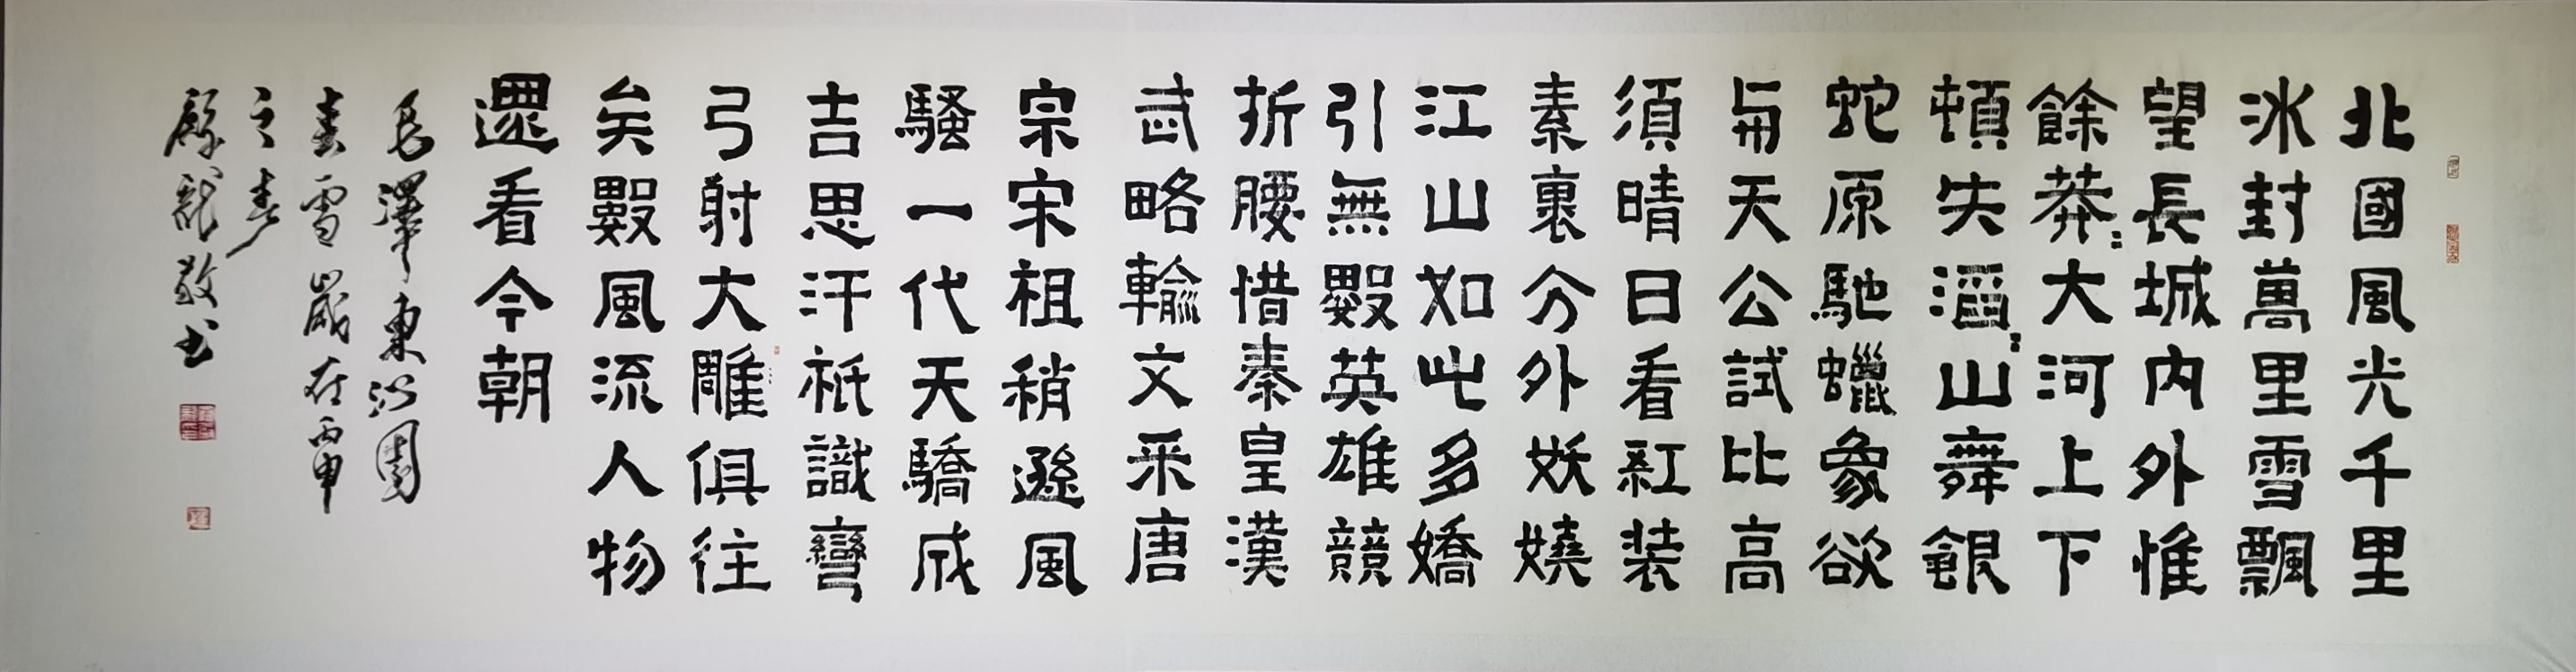 北國風光千里
冰封萬里雪飄
望長城内外惟
餘莽〻大河上下
頓失滔〻山舞銀
蛇原馳蠟象欲
與天公試比高
須晴日看紅装
素裹分外妖嬈
江山如此多嬌
引無數英雄競
折腰惜秦皇漢
武略輸文采唐
宗宋祖稍遜風
騷一代天驕成
吉思汗祇識彎
弓射大雕俱往
矣數風流人物
還看今朝
毛澤東沁園
春雪歲在丙申
之春
龍敬书